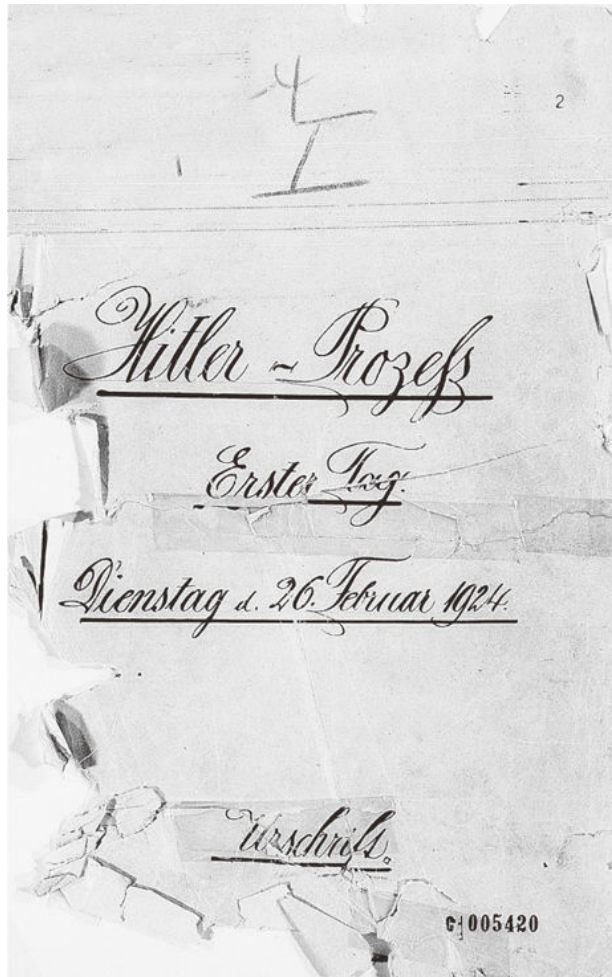 4
I
2
Hitler - Prozeß
Erster Tag.
Dienstag d. 26. Februar 1924.
Urschrift.
G 005420